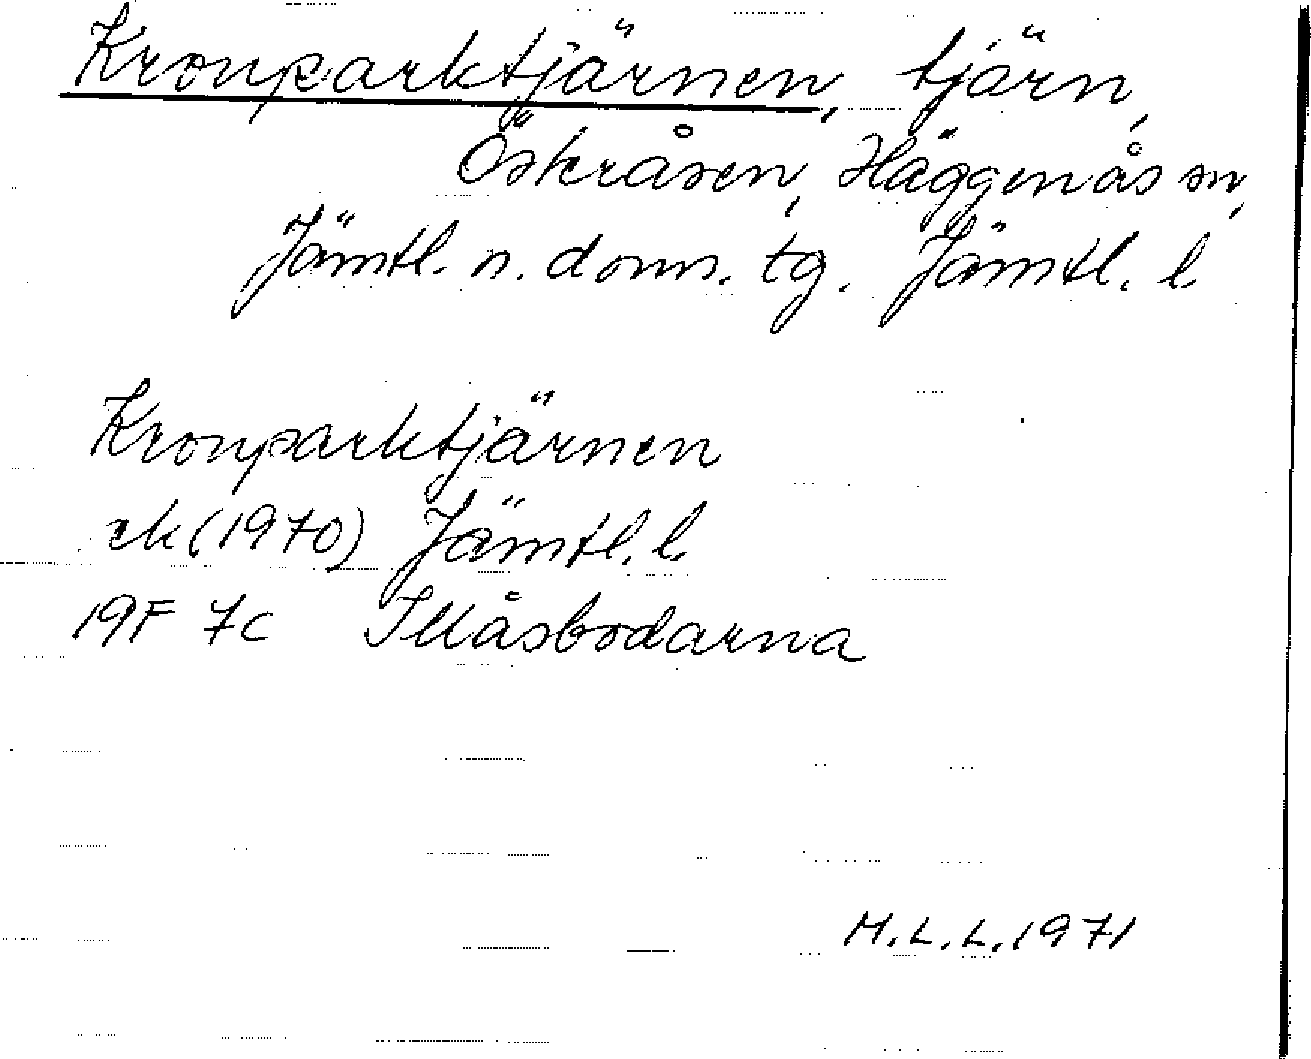 Kronparktjärnen, tjärn,
Öskråsen, Häggenås sn,
Jämtl. n. doms. tg. Jämtl. l
Kronparktjärnen
ek (1970) Jämtl. l.
19F 7c Illåsbodarna
M.L.L. 1971